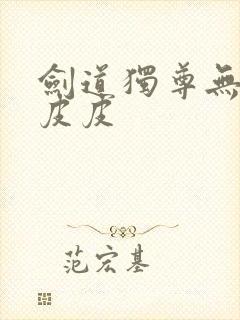 劍道獨尊無
皮皮
范宏基